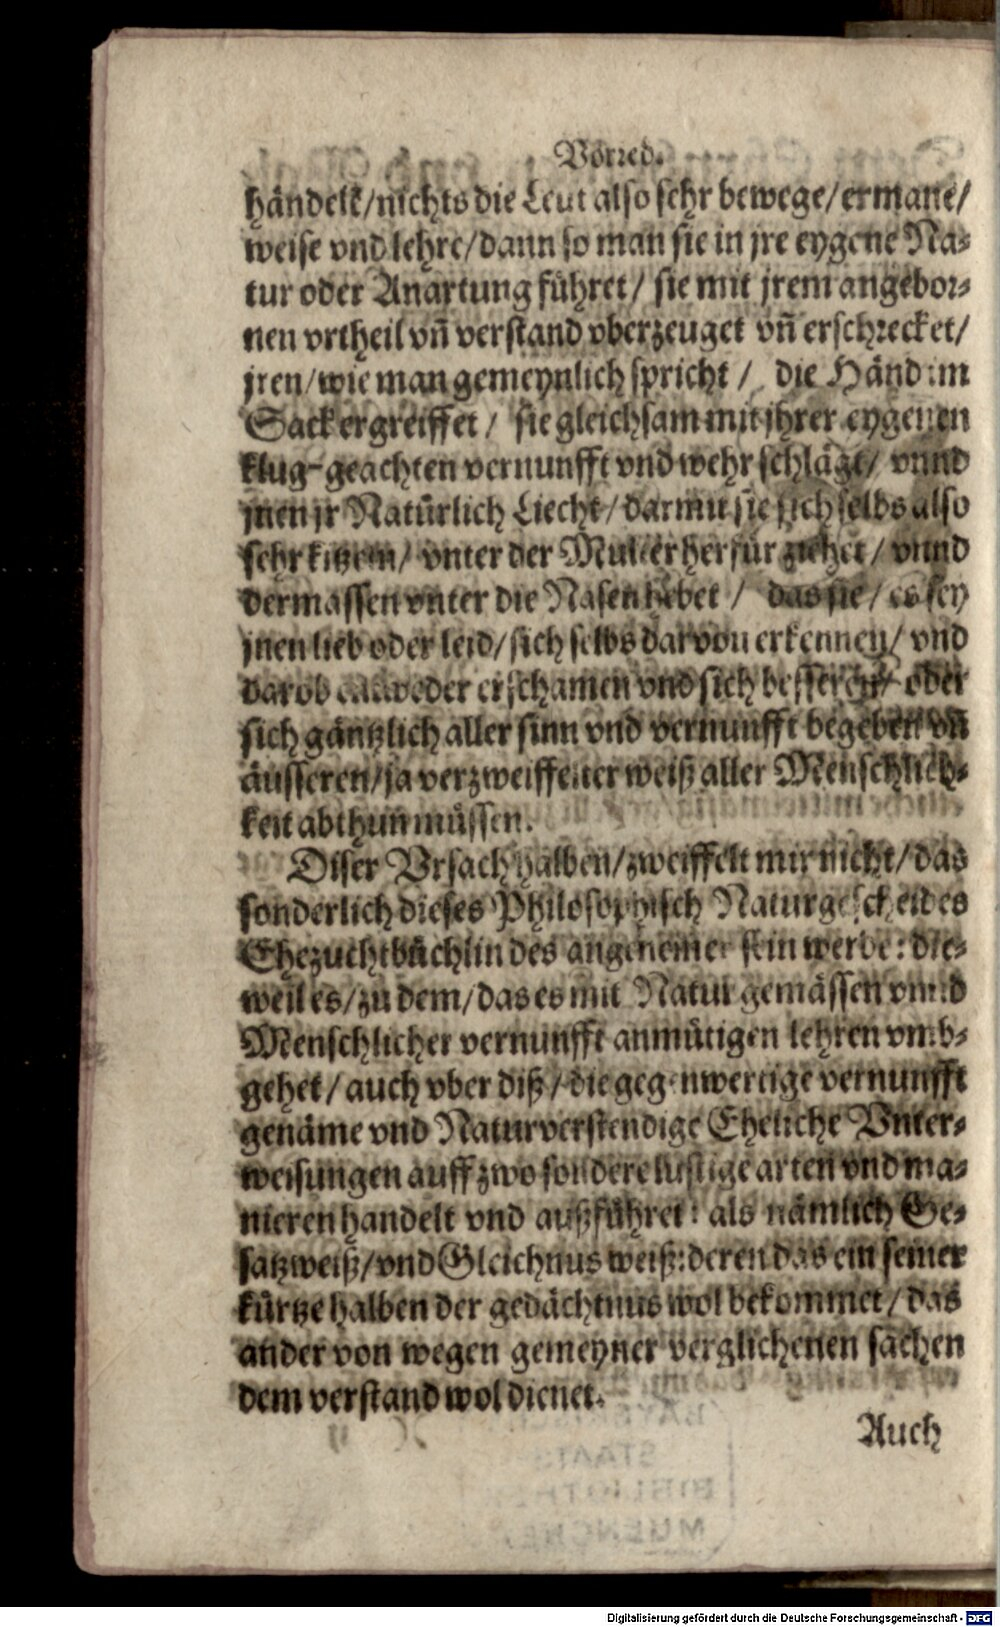 Vorred.
händelt/nichts die Leut also sehr bewege/ermane/
weise vnd lehre/dann so man sie in jre eygene Na-
tur oder Anartung führet/ sie mit jrem angebor-
nen vrtheil vñ verstand vberzeuget vñ erschrecket/
jren/wie man gemeynlich spricht/ die Händ im
Sack ergreiffet/ sie gleichsam mit jhrer eygenen
klug-geachten vernunfft vnd wehr schlägt/ vnnd
jnen jr Natürlich Liecht/darmit sie sich selbs also
sehr kitzeln/ vnter der Multer herfür ziehet/ vnnd
dermassen vnter die Nasen hebet/ das sie/es sey
jnen lieb oder leid/sich selbs darvon erkennen/ vnd
darob entweder erschamen vnd sich besseren/ oder
sich gäntzlich aller sinn vnd vernunfft begeben vñ
äusseren/ja verzweiffelter weiß aller Menschlich-
keit abthun müssen.
Diser Vrsach halben/zweiffelt mir nicht/das
sonderlich dieses Philosophisch Naturgescheides
Ehezuchtbüchlin des angenemer sein werde: die-
weil es/zu dem/das es mit Natur gemässen vnnd
Menschlicher vernunfft anmütigen lehren vmb-
gehet/auch vber diß/die gegenwertige vernunfft
genäme vnd Naturverstendige Eheliche Vnter-
weisungen auff zwo sondere lustige arten vnd ma-
nieren handelt vnd außführet: als nämlich Ge-
satzweiß/vnd Gleichnus weiß:deren das ein seiner
kürtze halben der gedächtnus wol bekommet/das
ander von wegen gemeyner verglichenen sachen
dem verstand wol dienet.
Auch
Digitalisierung gefördert durch die Deutsche Forschungsgemeinschaft - DFG